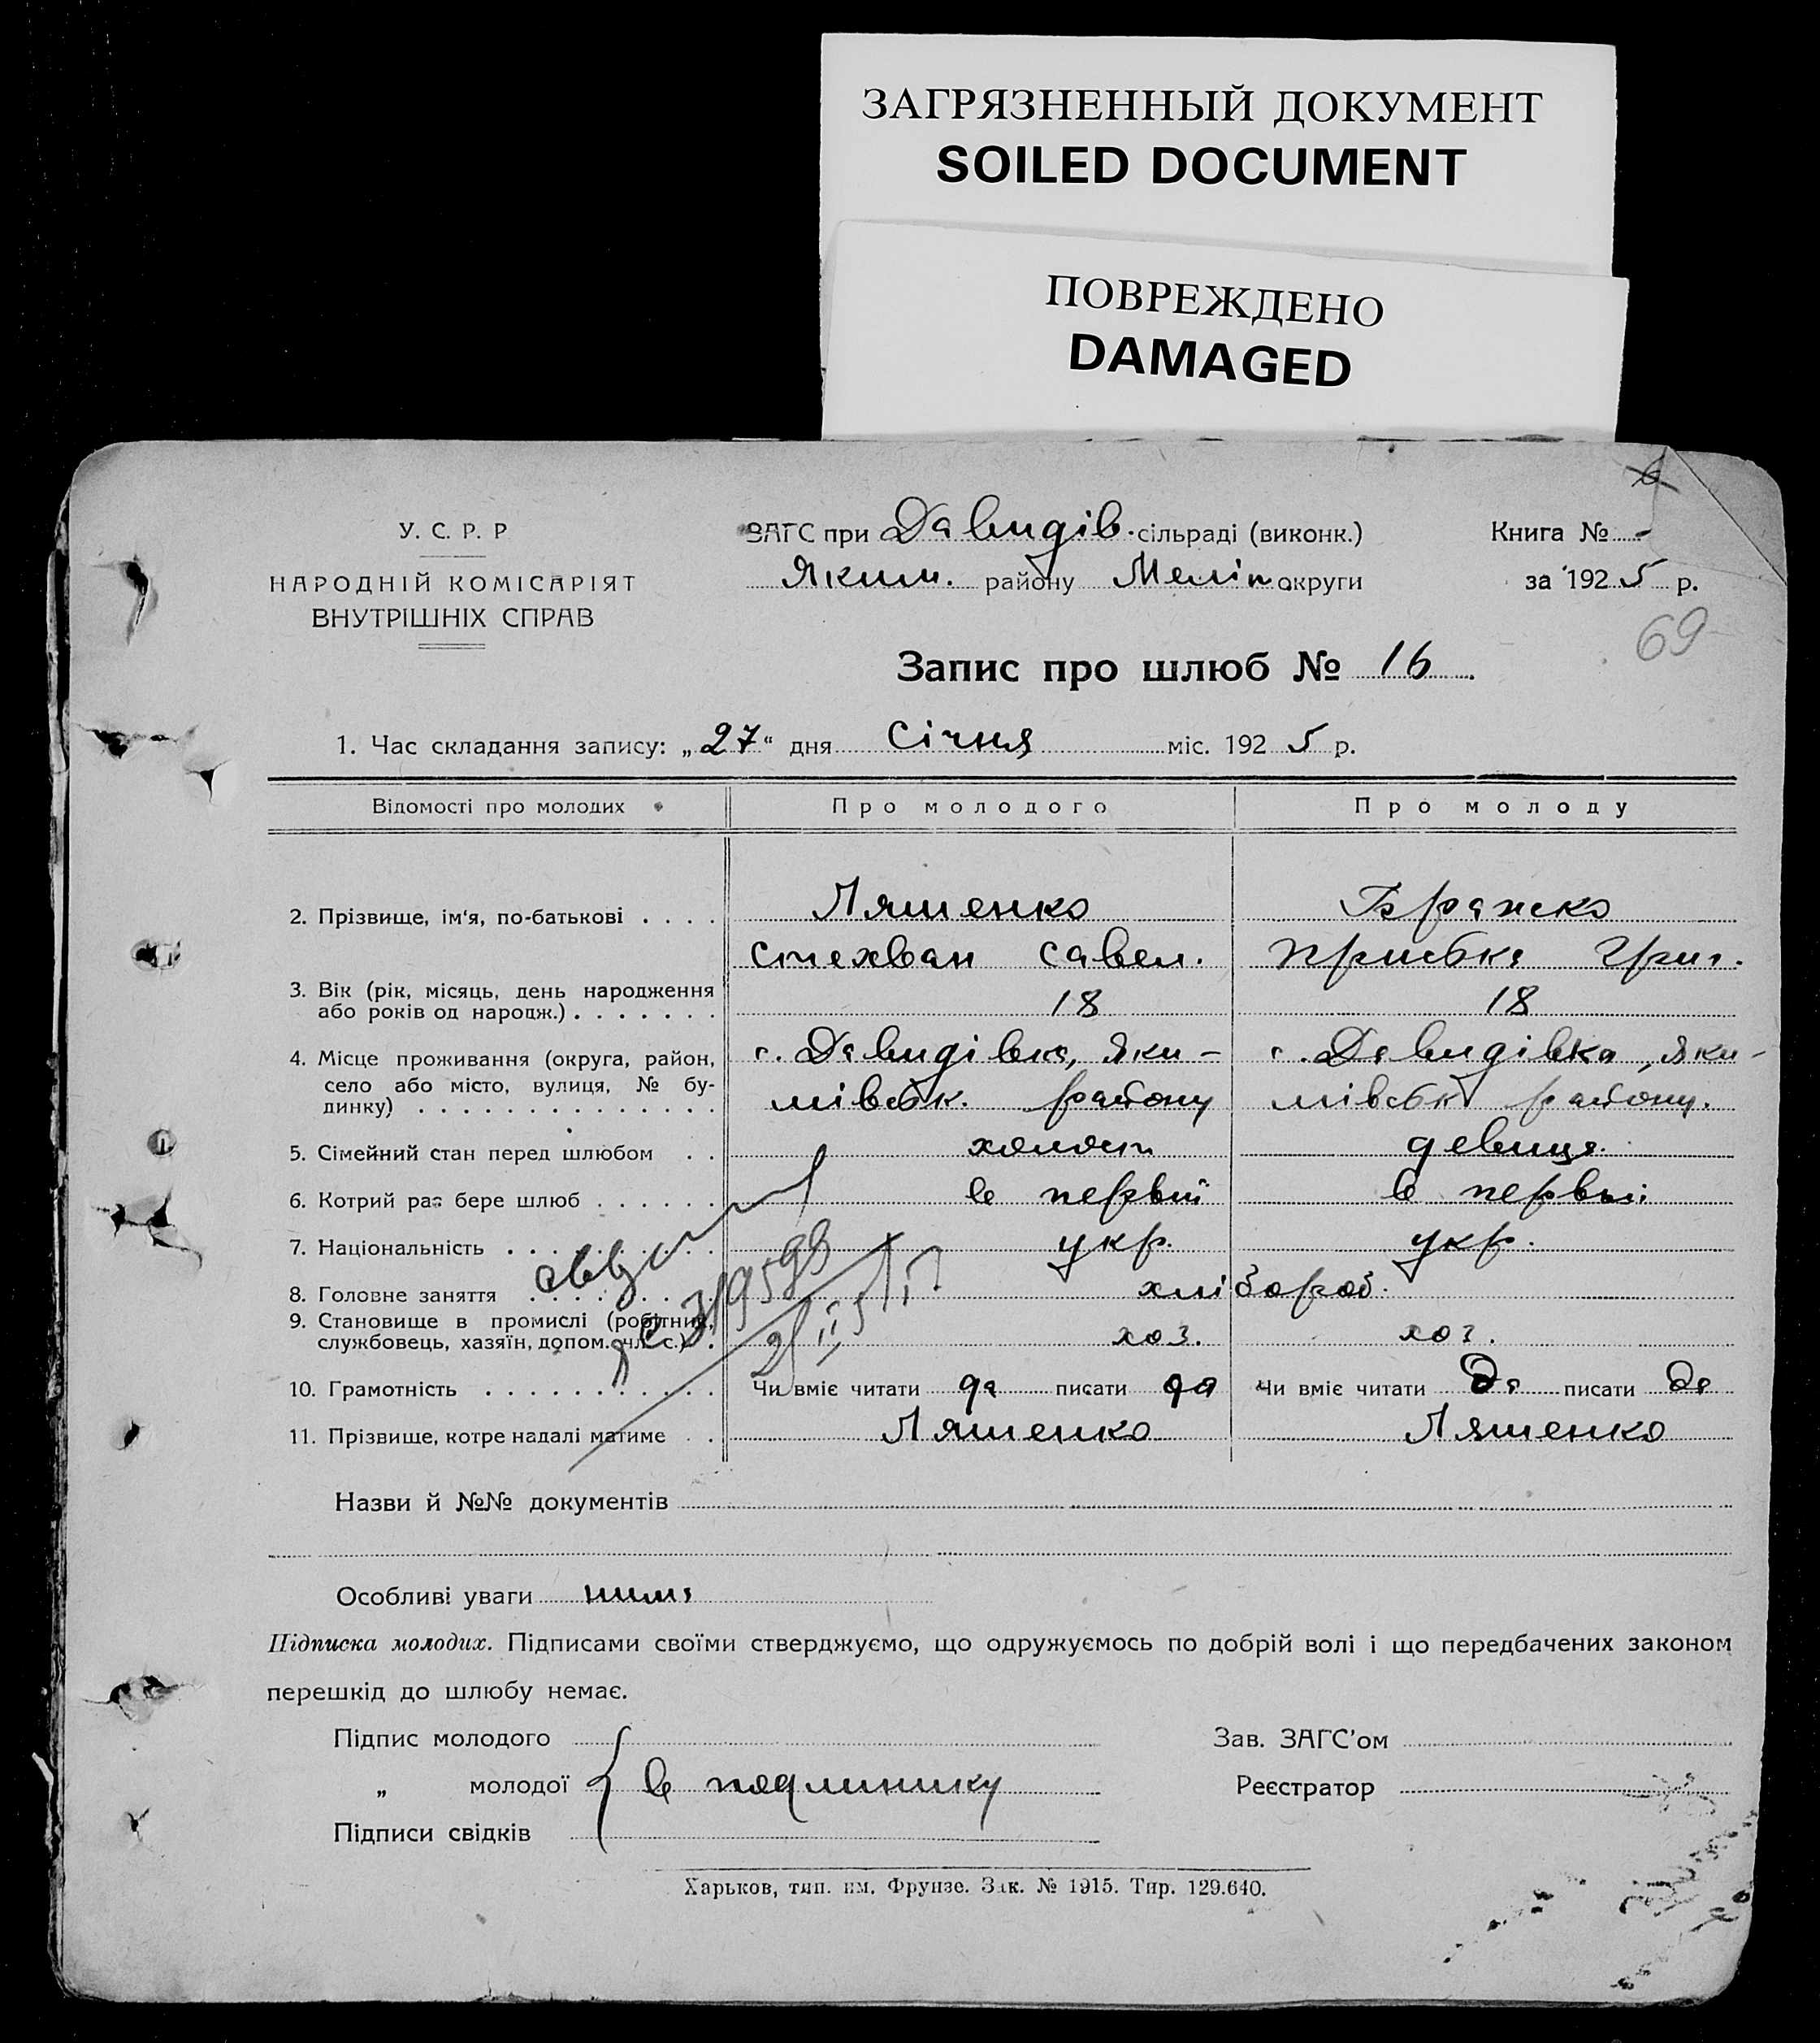 ЗАГРЯЗНЕННЫЙ ДОКУМЕНТ
SOILED DOCUMENT
ПОВРЕЖДЕНО
DAMAGED
У. С. Р. Р
НАРОДНІЙ КОМІСАРІЯТ
ВНУТРІШНІХ СПРАВ
ЗАГС при Давидів. сільраді (виконк.)
Яким. району Меліт округи
Книга №
за 1925 р.
69
Запис про шлюб № 16
1. Час складання запису: „27“ дня Січня міс. 1925 р.
Відомості про молодих Про молодого Про молоду
2. Прізвище, ім'я, по-батькові . . . . Ляшенко Бражко
Стехван Савел. Григ.
3. Вік (рік, місяць, день народження
або років од народж.) . . . . . . . 18 18
4. Місце проживання (округа, район, с. Давидівка, Яки- с. Давидівка, Яки-
село або місто, вулиця, № бу-
динку) . . . . . . . . . . . . . . мівськ. району мівськ району.
5. Сімейний стан перед шлюбом . . холост девица.
6. Котрий раз бере шлюб . . . . . . в первый в первый
7. Національність . . . . . . . . . . укр. укр.
8. Головне заняття . . . . . . . . . хлібороб.
9. Становище в промислі (робітник,
службовець, хазяїн, допом. чл. с.) . хоз. хоз.
10. Грамотність . . . . . . . . . . . Чи вміє читати да писати да Чи вміє читати да писати да
11. Прізвище, котре надалі матиме . . Ляшенко Ляшенко
Назви й №№ документів
Особливі уваги нима
Підписка молодих. Підписами своїми стверджуємо, що одружуємось по добрій волі і що передбачених законом
перешкід до шлюбу немає.
Підпис молодого Зав. ЗАГС'ом
„ молодої в подлинику Реєстратор
Підписи свідків
Харьков, тип. им. Фрунзе. Зак. № 1915. Тир. 129.640.